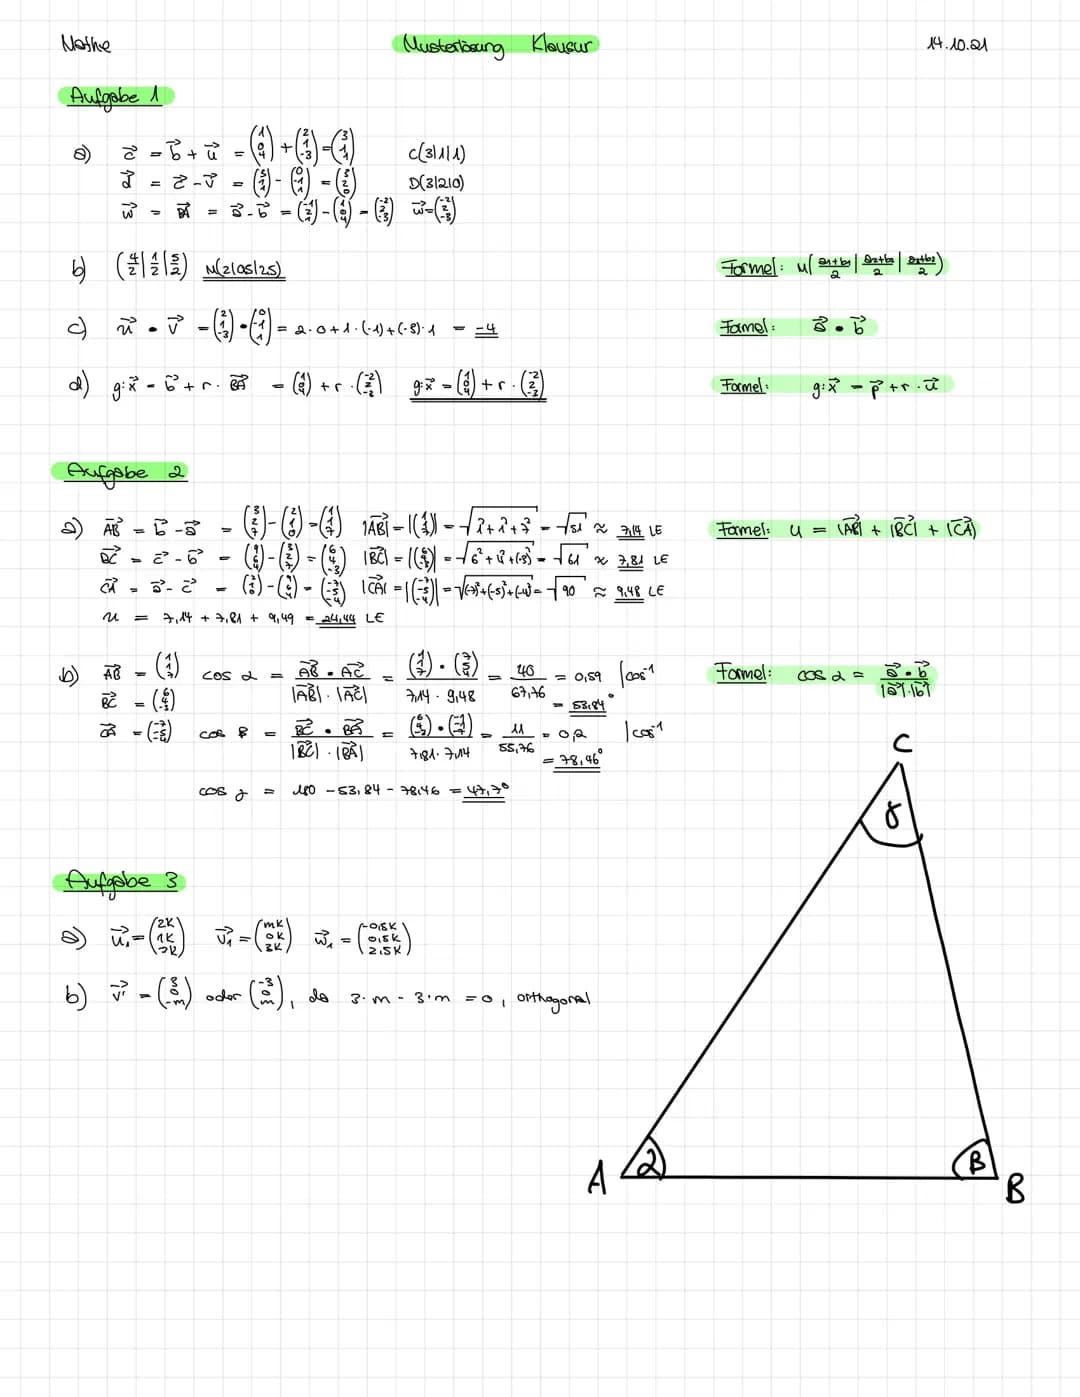 Mathe Musterlösung Klausur 14.10.21
Aufgabe 1
a) c⃗ = b⃗ + u⃗ = (1 0 4) + (2 1 -3) = (3 1 1) C(3|1|1)
d⃗ = c⃗ - v⃗ = (3 1 1) - (0 -1 1) = (3 2 0) D(3|2|0)
w⃗ = BA⃗ = a⃗ - b⃗ = (-1 2 1) - (1 0 4) = (-2 2 -3) w⃗ = (-2 2 -3)
b) (4/2 | 1/2 | 5/2) M(2|0,5|2,5) Formel: M(a1+b1/2 | a2+b2/2 | a3+b3/2)
c) u⃗ • v⃗ = (2 1 -3) • (0 -1 1) = 2·0+1·(-1)+(-3)·1 = -4 Formel: a⃗ • b⃗
d) g:x⃗ = b⃗ + r · BA⃗ = (1 0 4) + r · (-2 2 -2) g:x⃗ = (1 0 4) + r · (-2 2 -3) Formel: g:x⃗ = p⃗ + r · u⃗
Aufgabe 2
a) AB⃗ = b⃗ - a⃗ = (3 2 7) - (2 1 0) = (1 1 7) |AB⃗| = |(1 1 7)| = √1²+1²+7² = √51 ≈ 7,14 LE Formel: u = |AB⃗| + |BC⃗| + |CA⃗|
BC⃗ = c⃗ - b⃗ = (9 6 4) - (3 2 7) = (6 4 -3) |BC⃗| = |(6 4 -3)| = √6²+4²+(-3)² = √61 ≈ 7,81 LE
CA⃗ = a⃗ - c⃗ = (2 1 0) - (9 6 4) = (-7 -5 -4) |CA⃗| = |(-7 -5 -4)| = √(-7)²+(-5)²+(-4)² = √90 ≈ 9,48 LE
u = 7,14 + 7,81 + 9,49 = 24,44 LE
b) AB⃗ = (1 1 7) cos α = AB⃗ • AC⃗ / |AB⃗| · |AC⃗| = (1 1 7) • (7 5 4) / 7,14 · 9,48 = 40 / 67,76 = 0,59 |cos⁻¹ Formel: cos α = a⃗ • b⃗ / |a⃗|·|b⃗|
BC⃗ = (6 4 -3) = 53,84°
CA⃗ = (-7 -5 -4) cos β = BC⃗ • BA⃗ / |BC⃗| · |BA⃗| = (6 4 -3) • (-1 -1 -7) / 7,81 · 7,14 = 11 / 55,76 = 0,2 |cos⁻¹
= 78,46°
cos γ = 180 - 53,84 - 78,46 = 47,7°
C
γ
Aufgabe 3
a) u⃗₁ = (2K 1K ) v⃗₁ = (mK 0K 3K) w⃗₁ = (-0,5K 0,5K 2,5K)
b) v⃗' = (3 0 -m) oder (-3 0 m), da 3·m - 3·m = 0, orthogonal
A α β B